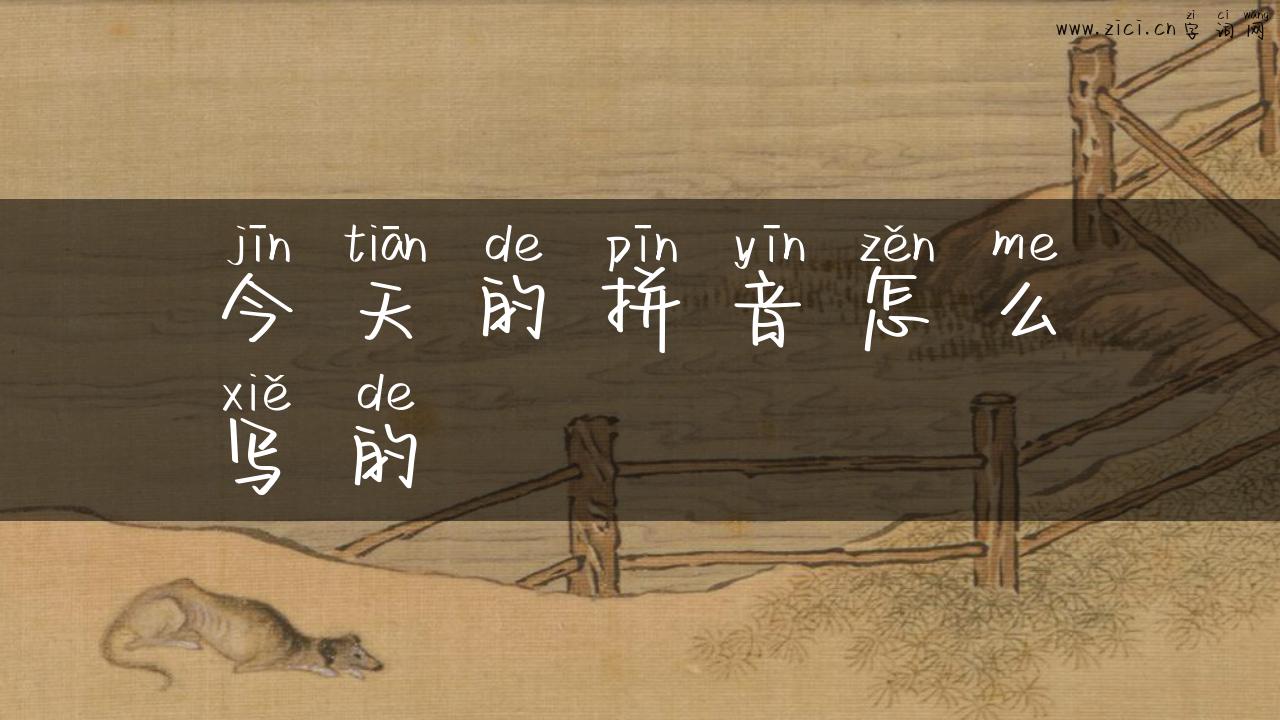 zi ci wang
www.zici.cn 字词网
jīn tiān de pīn yīn zěn me
今天的拼音怎么
xiě de
写的